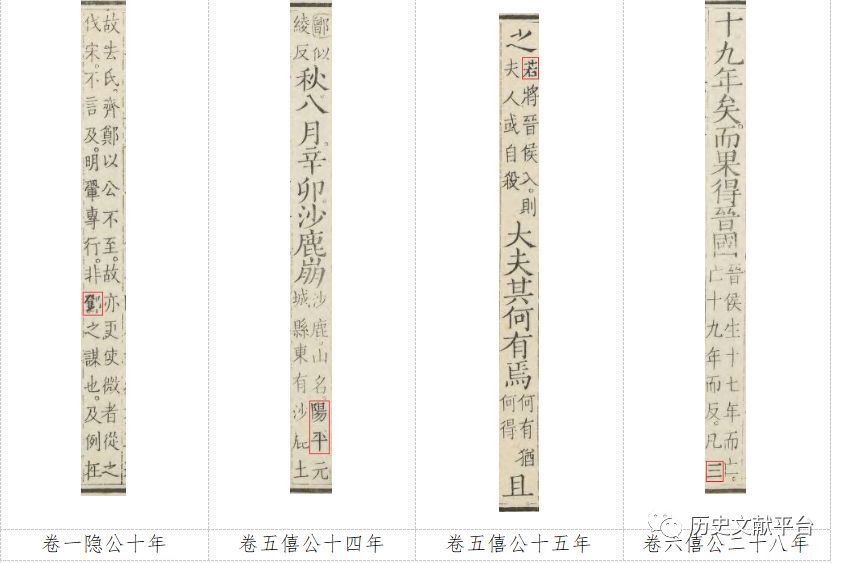 故去氏。齊鄭以公不至。故亦更使微者從之
伐宋。不言及。明翬專行。非鄧之謀也。及例在
鄫似
綾反
秋八月。辛卯沙鹿崩
沙鹿。山名。陽平元
城縣東有沙鹿土
之
若將晉侯入。則
夫人或自殺
大夫其何有焉
何有猶
何得
且
十九年矣。而果得晉國
晉侯生十七年而亡。
亡十九年而反。凡三
卷一隐公十年
卷五僖公十四年
卷五僖公十五年
卷六僖公二十八年
历史文献平台